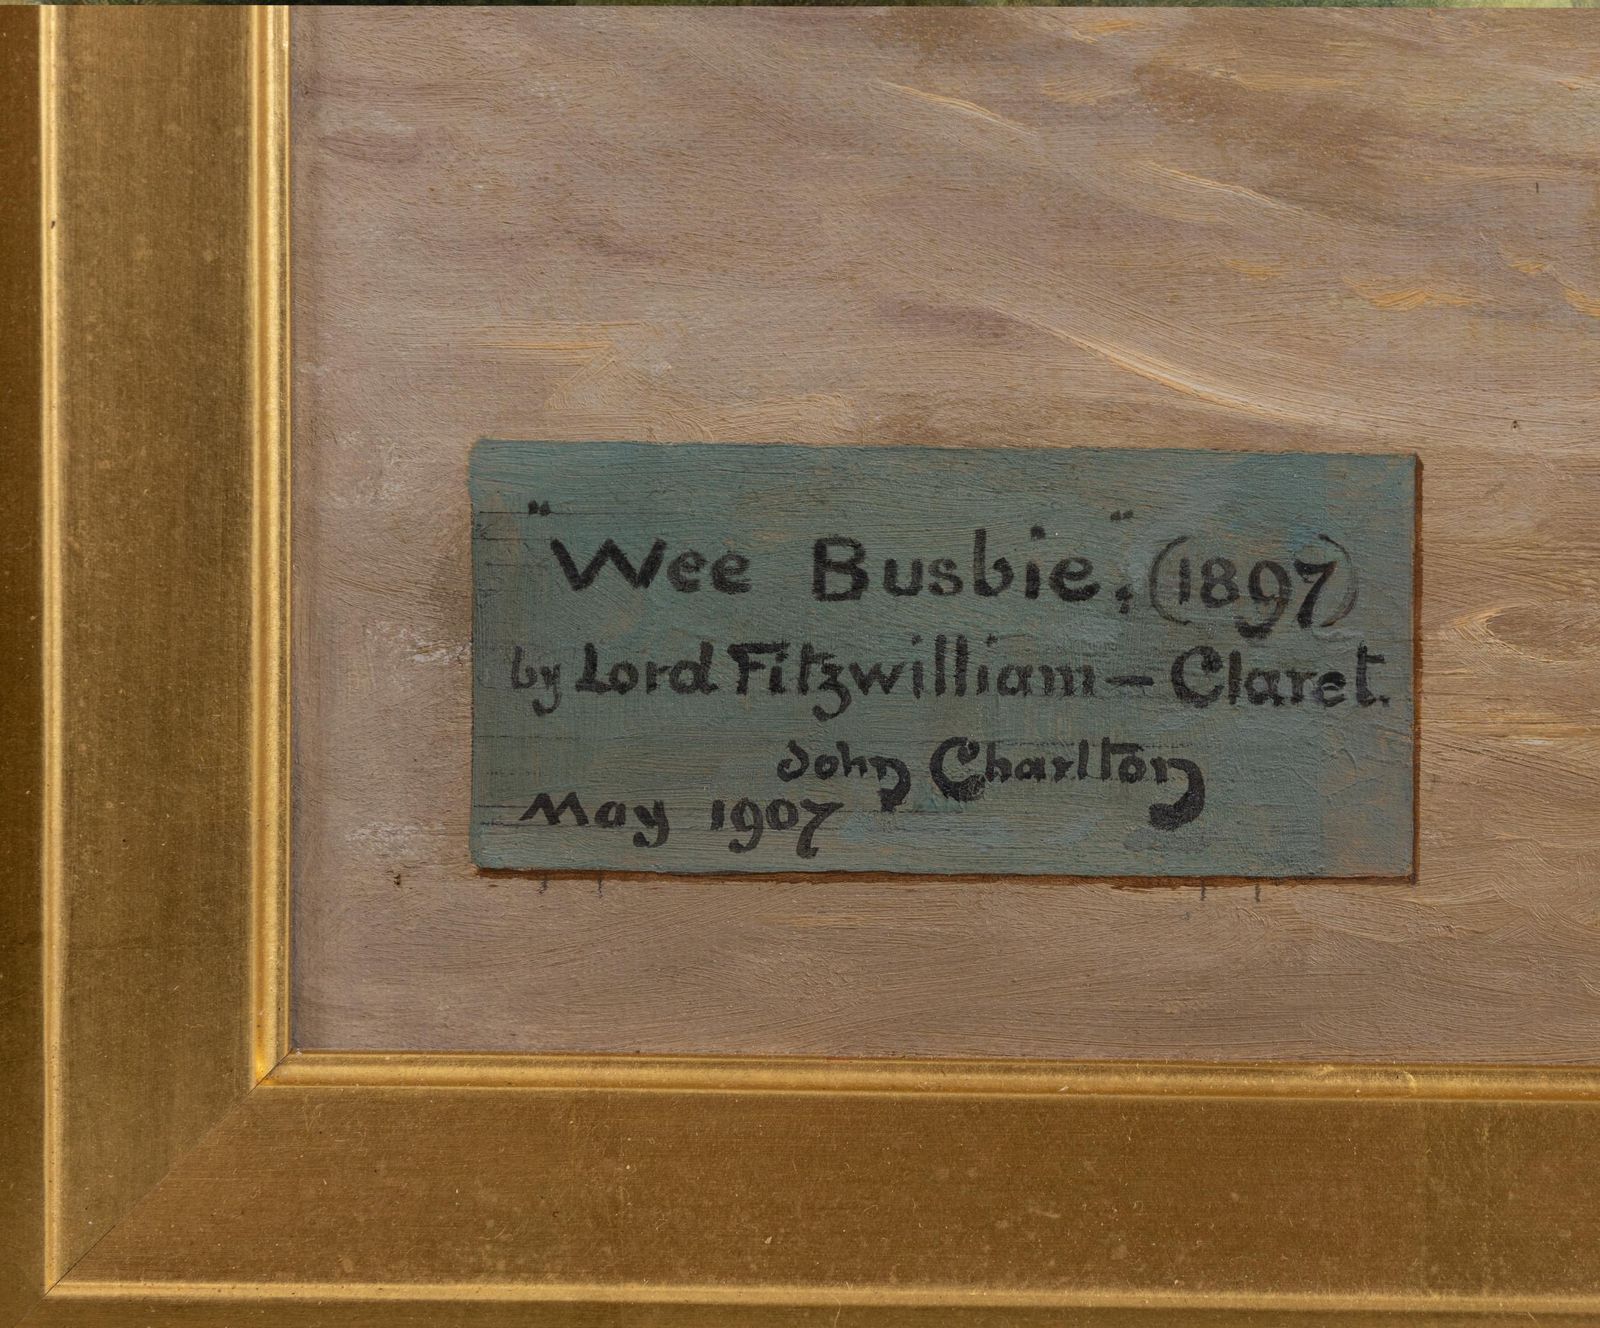 "Wee Busbie"; (1897)
by Lord Fitzwilliam — Claret.
John Charlton
May 1907